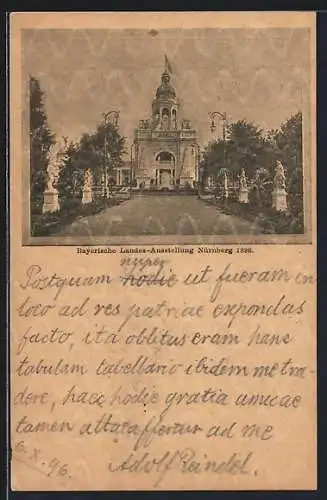 Bayerische Landes-Ausstellung Nürnberg 1896.
nuper
Postquam hodie ut fueram in
loco ad res patriae expondas
facto, ita oblitus eram hanc
tabulam tabellario ibidem me tra-
dere, haec hodie gratia amicae
tamen attaeaffertur ad me
6. X. 96.
Adolf Reindel.